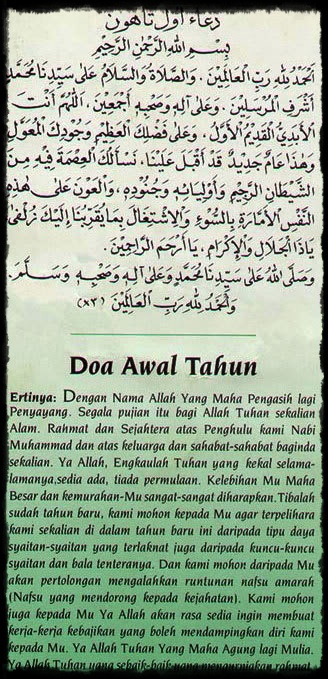 دعاء أول تاهون
بِسْمِ اللهِ الرَّحْمٰنِ الرَّحِيْمِ
اَلْحَمْدُ لِلّٰهِ رَبِّ الْعَالَمِيْنَ. وَالصَّلَاةُ وَالسَّلَامُ عَلٰى سَيِّدِنَا مُحَمَّدٍ
أَشْرَفِ الْمُرْسَلِيْنَ. وَعَلٰى آلِهِ وَصَحْبِهِ أَجْمَعِيْنَ. اَللّٰهُمَّ أَنْتَ
الْأَبَدِيُّ الْقَدِيْمُ الْأَوَّلُ. وَعَلٰى فَضْلِكَ الْعَظِيْمِ وَجُوْدِكَ الْمُعَوَّلُ
وَهٰذَا عَامٌ جَدِيْدٌ قَدْ أَقْبَلَ عَلَيْنَا. نَسْأَلُكَ الْعِصْمَةَ فِيْهِ مِنَ
الشَّيْطَانِ الرَّجِيْمِ وَأَوْلِيَائِهِ وَجُنُوْدِهِ. وَالْعَوْنَ عَلٰى هٰذِهِ
النَّفْسِ الْأَمَّارَةِ بِالسُّوْءِ وَالْاِشْتِغَالِ بِمَا يُقَرِّبُنَا إِلَيْكَ زُلْفٰى
يَاذَا الْجَلَالِ وَالْإِكْرَامِ. يَا أَرْحَمَ الرَّاحِمِيْنَ.
وَصَلَّى اللهُ عَلٰى سَيِّدِنَا مُحَمَّدٍ وَعَلٰى آلِهِ وَصَحْبِهِ وَسَلَّمَ.
وَالْحَمْدُ لِلّٰهِ رَبِّ الْعَالَمِيْنَ (×٣)
Doa Awal Tahun
Ertinya: Dengan Nama Allah Yang Maha Pengasih lagi
Penyayang. Segala pujian itu bagi Allah Tuhan sekalian
Alam. Rahmat dan Sejahtera atas Penghulu kami Nabi
Muhammad dan atas keluarga dan sahabat-sahabat baginda
sekalian. Ya Allah, Engkaulah Tuhan yang kekal selama-
lamanya,sedia ada, tiada permulaan. Kelebihan Mu Maha
Besar dan kemurahan-Mu sangat-sangat diharapkan.Tibalah
sudah tahun baru, kami mohon kepada Mu agar terpelihara
kami sekalian di dalam tahun baru ini daripada tipu daya
syaitan-syaitan yang terlaknat juga daripada kuncu-kuncu
syaitan dan bala tenteranya. Dan kami mohon daripada Mu
akan pertolongan mengalahkan runtunan nafsu amarah
(Nafsu yang mendorong kepada kejahatan). Kami mohon
juga kepada Mu Ya Allah akan rasa sedia ingin membuat
kerja-kerja kebajikan yang boleh mendampingkan diri kami
kepada Mu. Ya Allah Tuhan Yang Maha Agung lagi Mulia.
Ya Allah Tuhan yang sebaik-baik yang mengurniakan rahmat